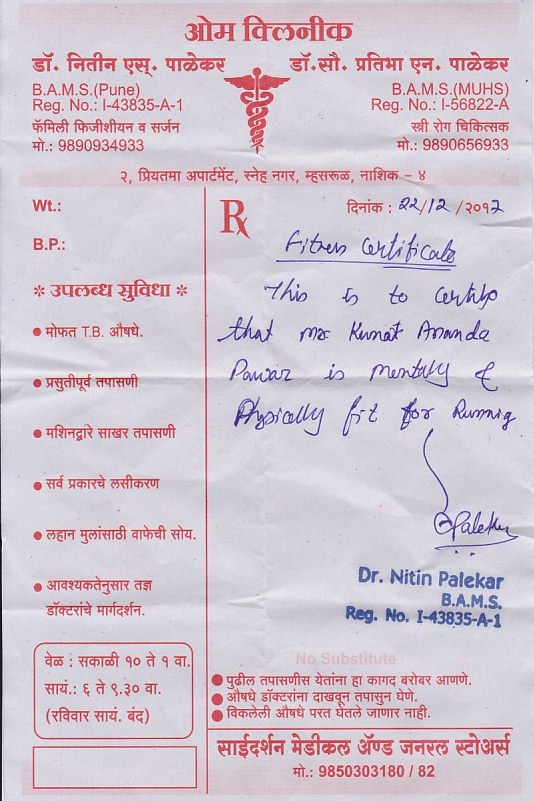 ओम क्लिनीक
डॉ. नितीन एस्. पाळेकर
B.A.M.S.(Pune)
Reg. No.: I-43835-A-1
फॅमिली फिजीशीयन व सर्जन
मो.: 9890934933
डॉ.सौ. प्रतिभा एन. पाळेकर
B.A.M.S.(MUHS)
Reg. No.: I-56822-A
स्त्री रोग चिकित्सक
मो.: 9890656933
२, प्रियतमा अपार्टमेंट, स्नेह नगर, म्हसरूळ, नाशिक - ४
Wt.:
B.P.:
* उपलब्ध सुविधा *
● मोफत T.B. औषधे.
● प्रसुतीपूर्व तपासणी
● मशिनद्वारे साखर तपासणी
● सर्व प्रकारचे लसीकरण
● लहान मुलांसाठी वाफेची सोय.
● आवश्यकतेनुसार तज्ञ
डॉक्टरांचे मार्गदर्शन.
वेळ : सकाळी १० ते १ वा.
सायं.: ६ ते ९.३० वा.
(रविवार सायं. बंद)
Rx
दिनांक : 22/12/२०१7
Fitness Certificate
This is to Certify
that Mr. Kunat Ananda
Pawar is mentaly &
Physically fit for Running
Palekar
Dr. Nitin Palekar
B.A.M.S.
Reg. No. I-43835-A-1
No Substitute
● पुढील तपासणीस येतांना हा कागद बरोबर आणणे.
● औषधे डॉक्टरांना दाखवून तपासुन घेणे.
● विकलेली औषधे परत घेतले जाणार नाही.
साईदर्शन मेडीकल अॅण्ड जनरल स्टोअर्स
मो.: 9850303180 / 82